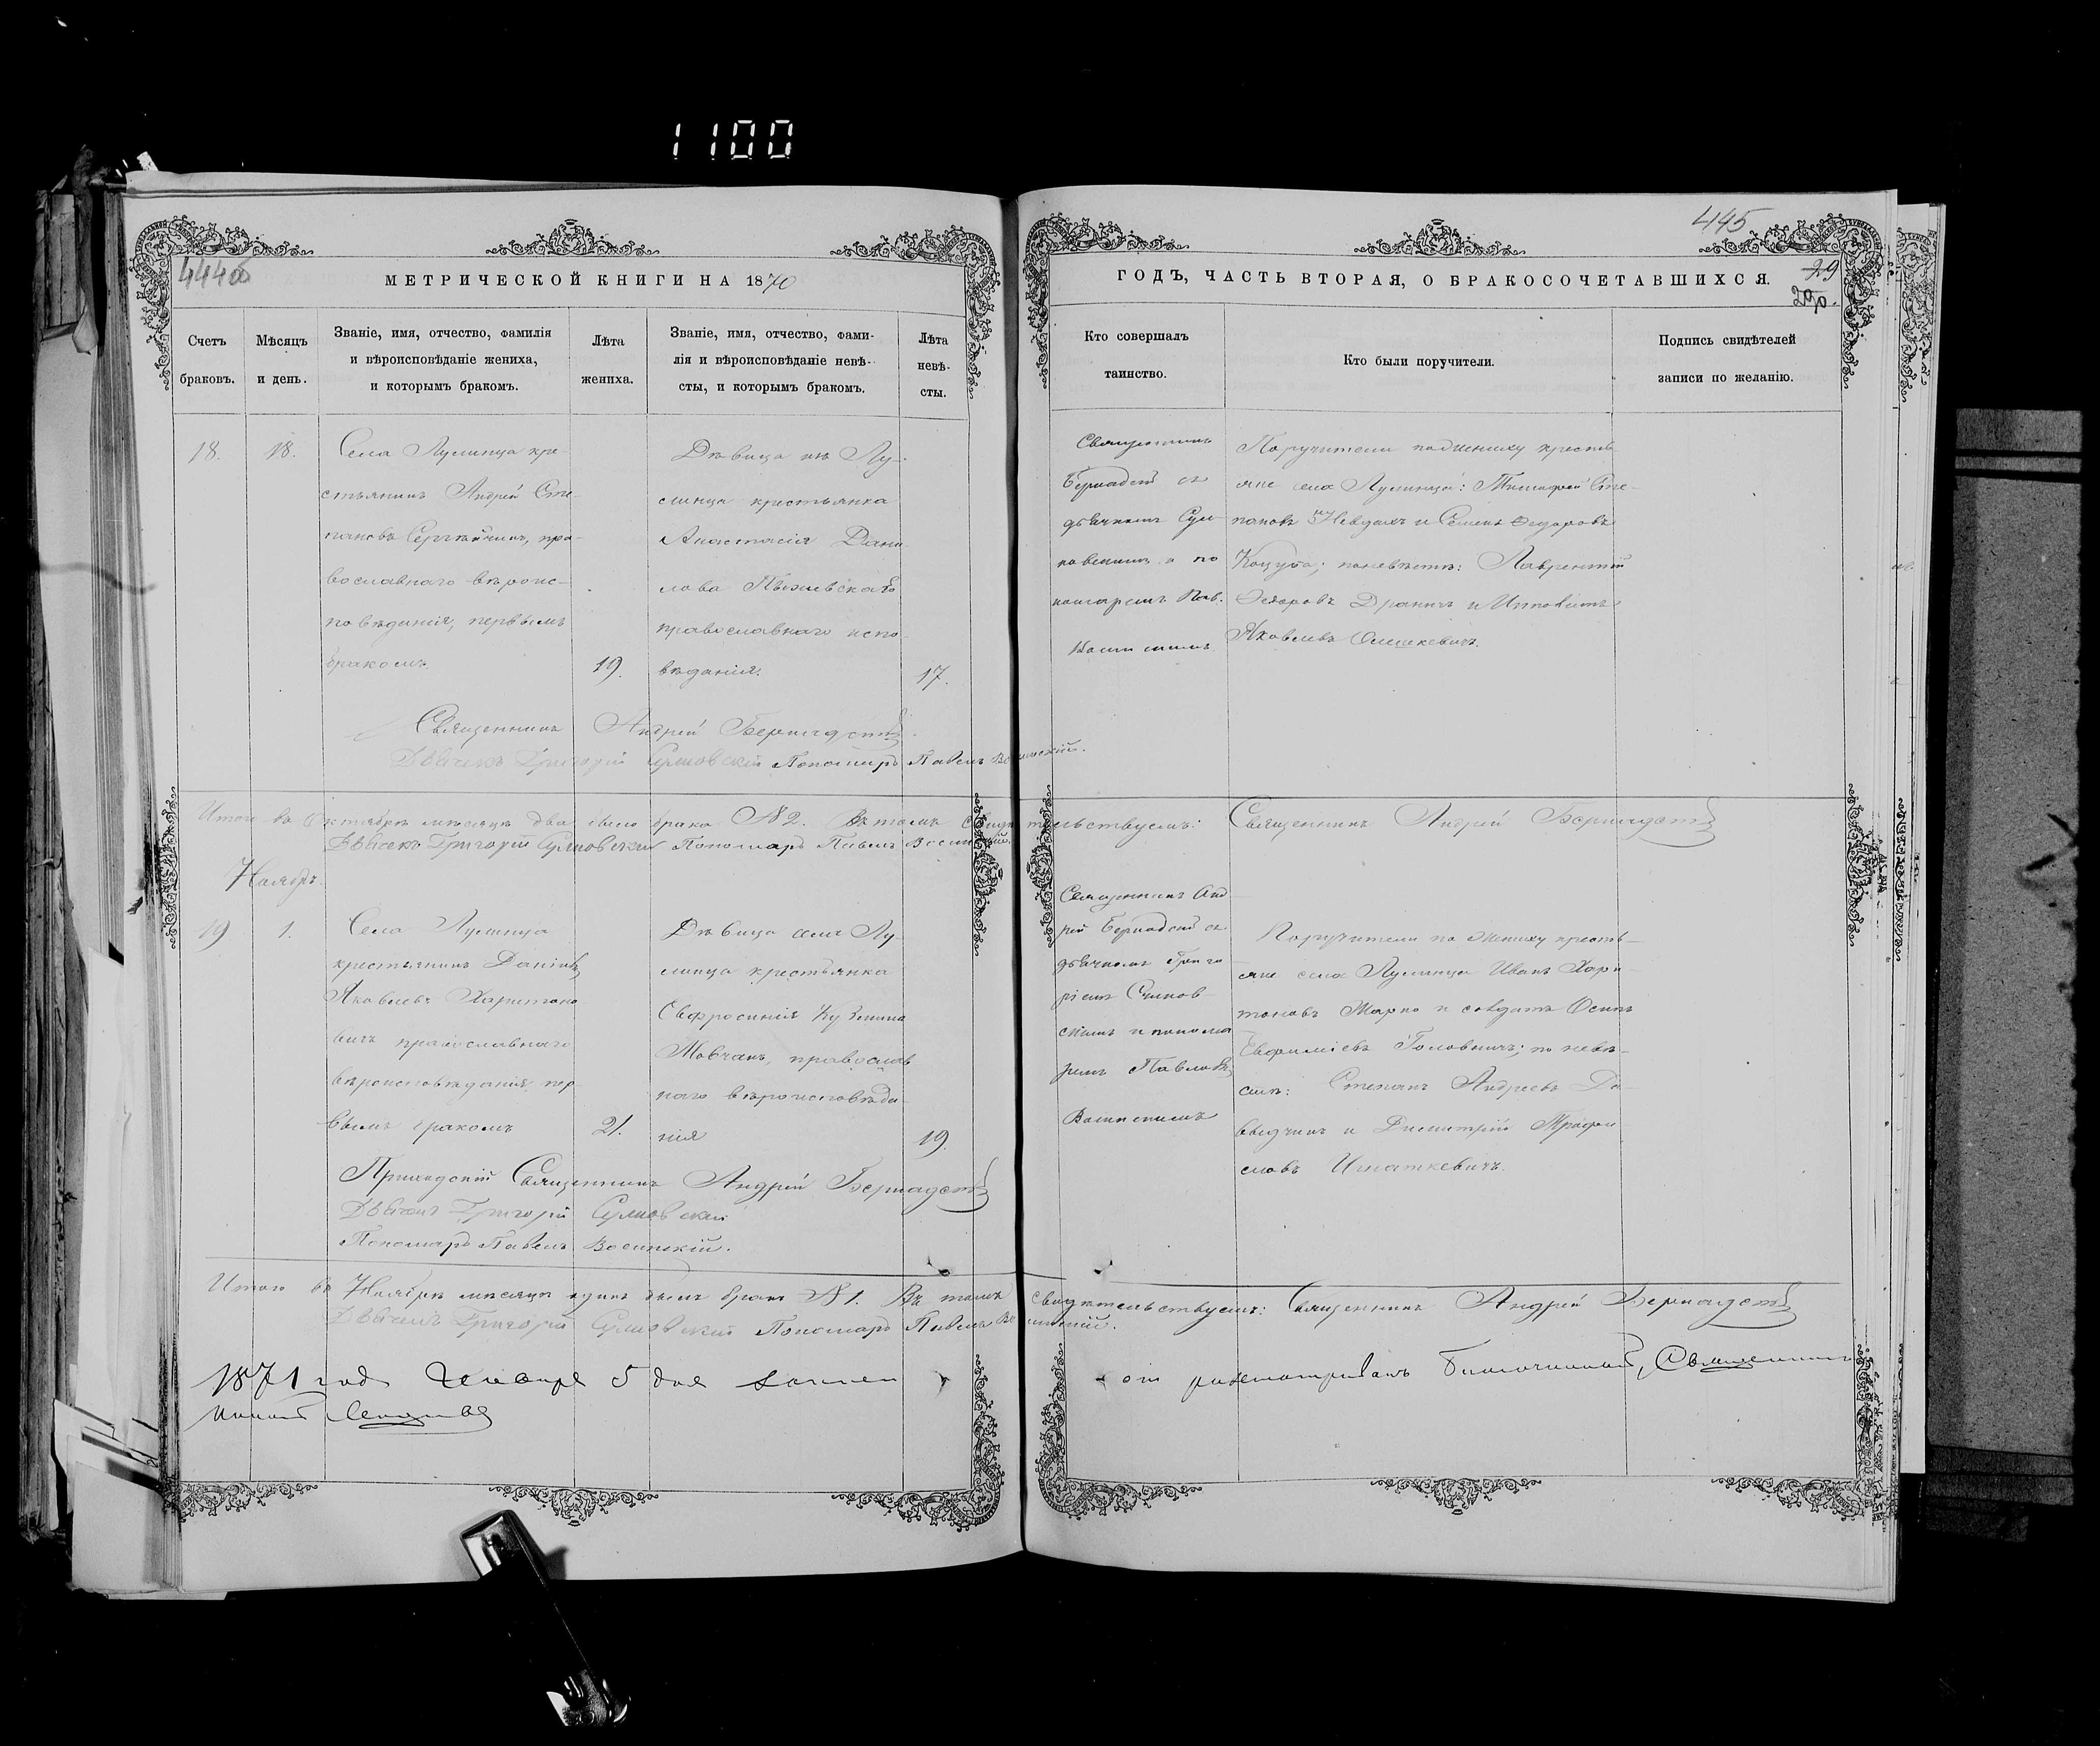 1100
445
444об
МЕТРИЧЕСКОЙ КНИГИ НА 1870
ГОДЪ, ЧАСТЬ ВТОРАЯ, О БРАКОСОЧЕТАВШИХСЯ.
29
290.
Счетъ
браковъ.
Мѣсяцъ
и день.
Званіе, имя, отчество, фамилія
и вѣроисповѣданіе жениха,
и которымъ бракомъ.
Лѣта
жениха.
Званіе, имя, отчество, фами-
лія и вѣроисповѣданіе невѣ-
сты, и которымъ бракомъ.
Лѣта
невѣ-
сты.
Кто совершалъ
таинство.
Кто были поручители.
Подпись свидѣтелей
записи по желанію.
18.
18.
Села Лунинца кре-
стьянинъ Андрей Сте-
пановъ Сергѣйчикъ, пра-
вославнаго вѣроис-
повѣданія, первымъ
бракомъ.
19.
Дѣвица Лу-
нинца крестьянка
Анастасія Дани-
лова
православнаго испо-
вѣданія.
17.
Священникъ
Бернадскій съ
дьячкомъ Сул-
ковскимъ и по
номаремъ Пав.
Поручители по жениху крестья
яне села Лунинца: Тимофей Сте-
пановъ и Семенъ Ѳедоровъ
Коцуба; по невѣстѣ: Лаврентій
Ѳедоровъ Драничъ и Ипполитъ
Яковлевъ Олешкевичъ.
Священникъ Андрей Бернадскій
Дьячекъ Григорій Пономарь Павелъ
Итого въ Октябрѣ мѣсяцѣ два было брака №2. Въ томъ свидѣтельствуемъ: Священникъ Андрей Бернадскій
Дьячекъ Григорій Пономарь Павелъ
Ноябрь.
19
1.
Села Лунинца
крестьянинъ Даніилъ
Яковлевъ Харитоно
вичъ православнаго
вѣроисповѣданія, пер-
вымъ бракомъ
21.
Дѣвица села Лу-
нинца крестьянка
Евфросинія Кузьмина
Мовчанъ, православ
наго вѣроисповѣда-
нія
19.
Священникъ Анд
рей Бернадскій съ
дьячкомъ Григо
ріемъ
скимъ и понома
ремъ Павломъ
Поручители по жениху крестья-
яне села Лунинца Иванъ Хари-
тоновъ Марко и солдатъ Осипъ
Евфиміевъ Головничъ; по невѣ-
стѣ: Степанъ Андреевъ Да-
выдчикъ и Димитрій
Игнаткевичъ.
Приходскій Священникъ Андрей Бернадскій
Дьячекъ Григорій
Пономарь Павелъ
Итого въ Ноябрѣ мѣсяцѣ одинъ былъ бракъ №1. Въ томъ свидѣтельствуемъ: Священникъ Андрей Бернадскій
Дьячекъ Григорій Пономарь Павелъ
1871 года Генваря 5 дня
разсматривалъ Благочинный, Священникъ